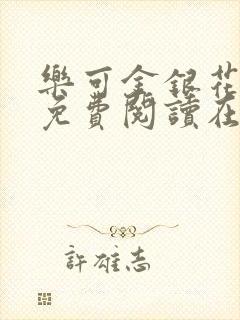 樂可金銀花
免費閱讀在
許雄志